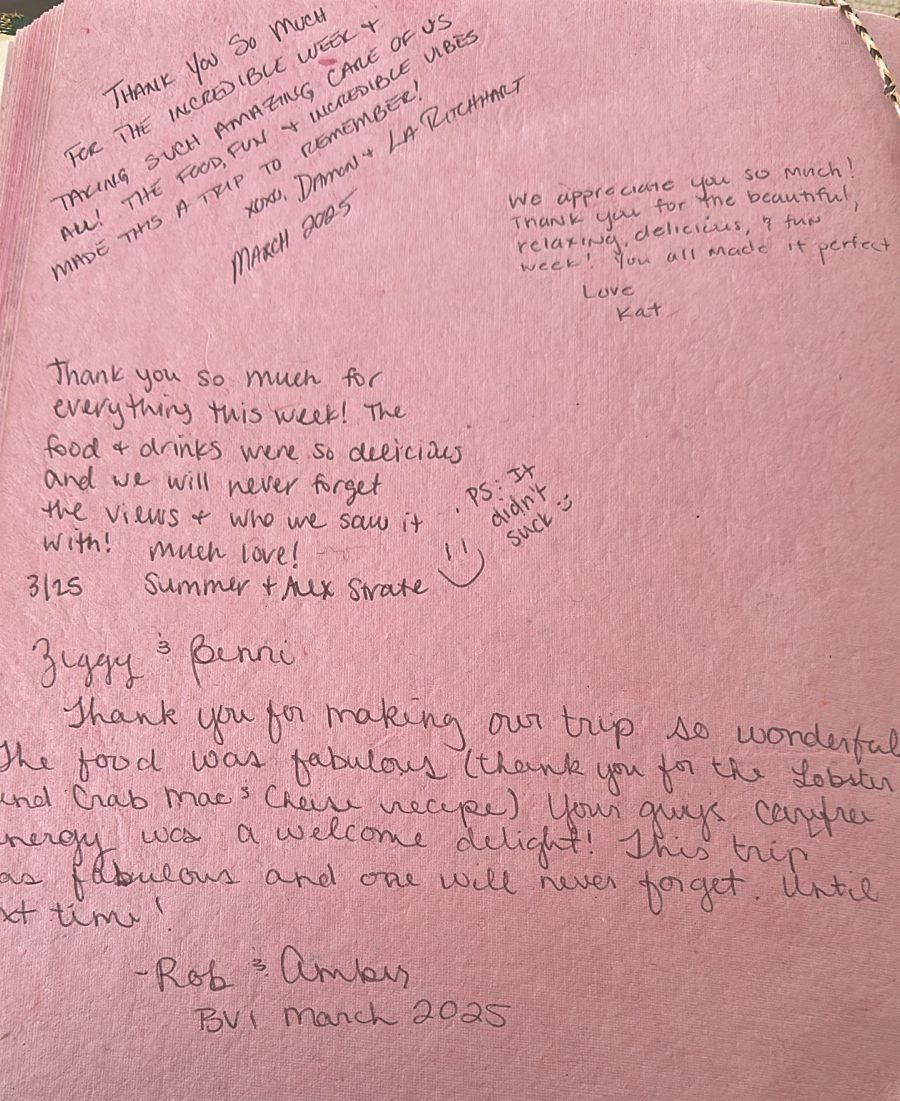 THANK YOU SO MUCH
FOR THE INCREDIBLE WEEK +
TAKING SUCH AMAZING CARE OF US
ALL! THE FOOD, FUN + INCREDIBLE VIBES
MADE THIS A TRIP TO REMEMBER!
XOXO, DAMON + LA RITCHHART
MARCH 2025
We appreciate you so much!
Thank you for the beautiful,
relaxing, delicious, & fun
week! You all made it perfect
Love
Kat
Thank you so much for
everything this week! The
food + drinks were so delicious
and we will never forget
the views + who we saw it
with! much love!
3/25 Summer + Alex Strate
PS: It
didn't
suck :)
Ziggy & Benni
Thank you for making our trip so wonderful
The food was fabulous (thank you for the Lobster
and Crab Mac & Cheese recipe) Your guys carefree
nergy was a welcome delight! This trip
as fabulous and one will never forget. Until
xt time!
-Rob & Amber
BVI March 2025